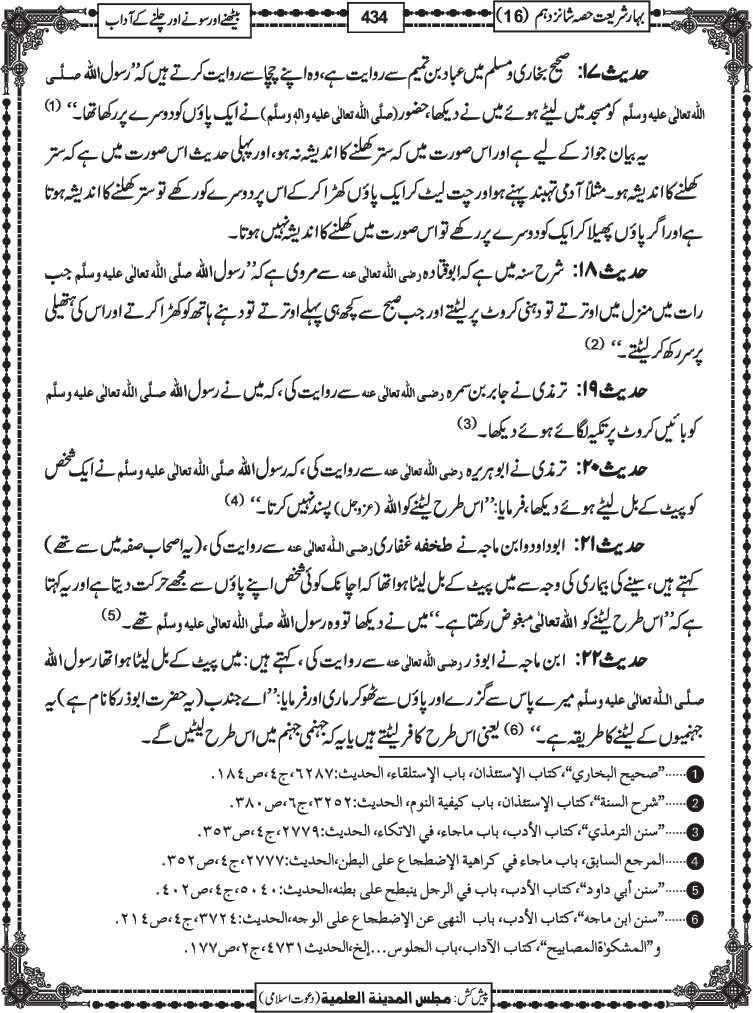 بہار شریعت حصہ شانزدہم (16)
434
بیٹھنے اور سونے اور چلنے کے آداب
حدیث ۱۷: صحیح بخاری و مسلم میں عباد بن تمیم سے روایت ہے، وہ اپنے چچا سے روایت کرتے ہیں کہ ’’رسول اللہ صلَّی
اللہ تعالٰی علیہ وسلَّم کو مسجد میں لیٹے ہوئے میں نے دیکھا، حضور (صلَّی اللہ تعالٰی علیہ واٰلہٖ وسلَّم) نے ایک پاؤں کو دوسرے پر رکھا تھا۔‘‘ (1)
یہ بیان جواز کے لیے ہے اور اس صورت میں کہ ستر کھلنے کا اندیشہ نہ ہو، اور پہلی حدیث اس صورت میں ہے کہ ستر
کھلنے کا اندیشہ ہو۔ مثلاً آدمی تہبند پہنے ہو اور چت لیٹ کر ایک پاؤں کھڑا کر کے اس پر دوسرے کو رکھے تو ستر کھلنے کا اندیشہ ہوتا
ہے اور اگر پاؤں پھیلا کر ایک کو دوسرے پر رکھے تو اس صورت میں کھلنے کا اندیشہ نہیں ہوتا۔
حدیث ۱۸: شرح سنہ میں ہے کہ ابو قتادہ رضی اللہ تعالٰی عنہ سے مروی ہے کہ ’’رسول اللہ صلَّی اللہ تعالٰی علیہ وسلَّم جب
رات میں منزل میں اوترتے تو دہنی کروٹ پر لیٹتے اور جب صبح سے کچھ ہی پہلے اوترتے تو دہنے ہاتھ کو کھڑا کرتے اور اس کی ہتھیلی
پر سر رکھ کر لیٹتے۔‘‘ (2)
حدیث ۱۹: ترمذی نے جابر بن سمرہ رضی اللہ تعالٰی عنہ سے روایت کی، کہ میں نے رسول اللہ صلَّی اللہ تعالٰی علیہ وسلَّم
کو بائیں کروٹ پر تکیہ لگائے ہوئے دیکھا۔ (3)
حدیث ۲۰: ترمذی نے ابوہریرہ رضی اللہ تعالٰی عنہ سے روایت کی، کہ رسول اللہ صلَّی اللہ تعالٰی علیہ وسلَّم نے ایک شخص
کو پیٹ کے بل لیٹے ہوئے دیکھا، فرمایا: ’’اس طرح لیٹنے کو اللہ (عزوجل) پسند نہیں کرتا۔‘‘ (4)
حدیث ۲۱: ابوداود و ابن ماجہ نے طخفہ غفاری رضی اللہ تعالٰی عنہ سے روایت کی، (یہ اصحاب صفہ میں سے تھے)
کہتے ہیں، سینے کی بیماری کی وجہ سے میں پیٹ کے بل لیٹا ہوا تھا کہ اچانک کوئی شخص اپنے پاؤں سے مجھے حرکت دیتا ہے اور یہ کہتا
ہے کہ ’’اس طرح لیٹنے کو اللہ تعالٰی مبغوض رکھتا ہے۔‘‘ میں نے دیکھا تو وہ رسول اللہ صلَّی اللہ تعالٰی علیہ وسلَّم تھے۔ (5)
حدیث ۲۲: ابن ماجہ نے ابوذر رضی اللہ تعالٰی عنہ سے روایت کی، کہتے ہیں: میں پیٹ کے بل لیٹا ہوا تھا رسول اللہ
صلَّی اللہ تعالٰی علیہ وسلَّم میرے پاس سے گزرے اور پاؤں سے ٹھوکر ماری اور فرمایا: ’’اے جندب (یہ حضرت ابوذر کا نام ہے) یہ
جہنمیوں کے لیٹنے کا طریقہ ہے۔‘‘ (6) یعنی اس طرح کافر لیٹتے ہیں یا یہ کہ جہنمی جہنم میں اس طرح لیٹیں گے۔
1 ......’’صحیح البخاري‘‘، کتاب الإستئذان، باب الإستلقاء، الحدیث: ٦٢٨٧، ج٤، ص١٨٤.
2 ......’’شرح السنة‘‘، کتاب الإستئذان، باب کیفیة النوم، الحدیث: ٣٢٥٢، ج٦، ص٣٨٠.
3 ......’’سنن الترمذي‘‘، کتاب الأدب، باب ماجاء في الاتکاء، الحدیث: ٢٧٧٩، ج٤، ص٣٥٣.
4 ......المرجع السابق، باب ماجاء في کراهیة الإضطجاع على البطن، الحدیث: ٢٧٧٧، ج٤، ص٣٥٢.
5 ......’’سنن أبي داود‘‘، کتاب الأدب، باب في الرجل ینبطح على بطنه، الحدیث: ٥٠٤٠، ج٤، ص٤٠٢.
6 ......’’سنن ابن ماجه‘‘، کتاب الأدب، باب النهی عن الإضطجاع على الوجه، الحدیث: ٣٧٢٤، ج٤، ص٢١٤.
و’’المشکوٰة المصابیح‘‘، کتاب الآداب، باب الجلوس...إلخ، الحدیث ٤٧٣١، ج٢، ص١٧٧.
پیش کش: مجلس المدینة العلمیة (دعوت اسلامی)